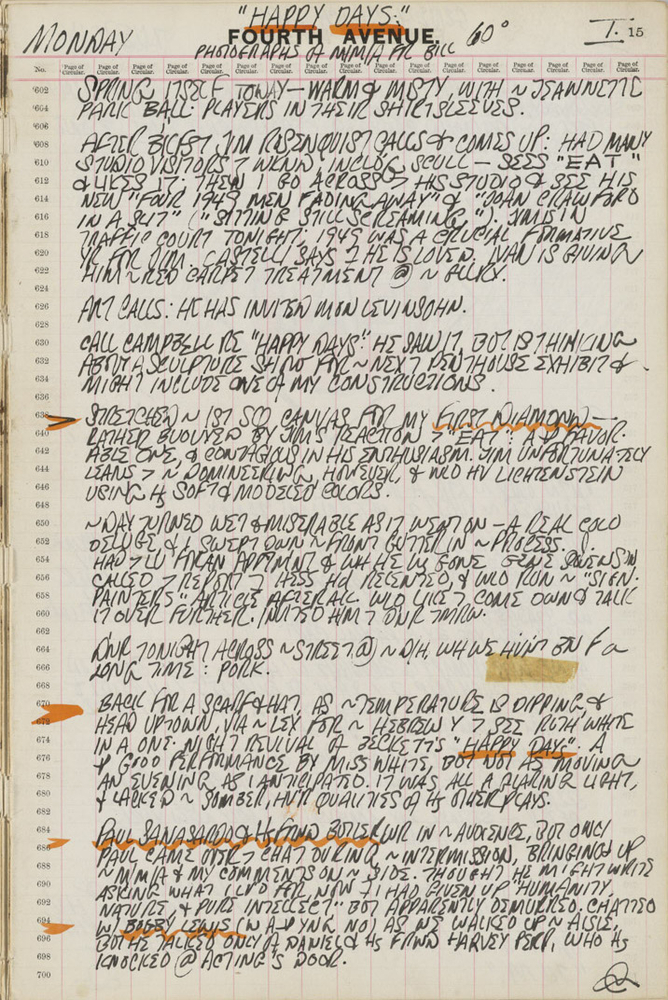 "HAPPY DAYS:"
MONDAY
FOURTH AVENUE.
60°
I. 15
PHOTOGRAPHS of M/M/A FR BILL
No. Page of Circular. Page of Circular. Page of Circular. Page of Circular. Page of Circular. Page of Circular. Page of Circular. Page of Circular. Page of Circular. Page of Circular. Page of Circular.
602 SPRING ITSELF TODAY — WARM & MISTY, WITH ~ JEANNETTE
604 PARK BALL: PLAYERS IN THEIR SHIRTSLEEVES.
606
608 AFTER BKFST JIM ROSENQUIST CALLS & COMES UP: HAD MANY
610 STUDIO VISITORS > WKND, INCLDG SCULL — SEES "EAT"
612 & LIKES IT: THEN I GO ACROSS > HIS STUDIO & SEE HIS
614 NEW "FOUR 1949 MEN FADING AWAY" & "JOAN CRAWFORD
616 IN A SLIT" ("SITTING STILL SCREAMING"). JIM IS IN
618 TRAFFIC COURT TONIGHT: 1949 WAS A CRUCIAL FORMATIVE
620 YR FOR HIM. CASTELLI SAYS HE IS LOVED. IVAN IS GIVING
622 HIM ~ RED CARPET TREATMENT @ ~ GLLRY.
624
626 ART CALLS: HE HAS INVITED MON LEVINSOHN.
628
630 CALL CAMPBELL RE "HAPPY DAYS:" HE SAW IT, BUT IS THINKING
632 ABOUT A SCULPTURE SHOW FOR ~ NEXT PENTHOUSE EXHIBIT &
634 MIGHT INCLUDE ONE of MY CONSTRUCTIONS.
636
638 STRETCHED ~ 1ST SQ CANVAS FOR MY FIRST DIAMOND —
640 RATHER BUOYED BY JIM'S REACTION > "EAT": A FAVOR-
642 ABLE ONE, & CONTAGIOUS IN HIS ENTHUSIASM. JIM UNFORTUNATELY
644 LEANS > ~ DOMINEERING, HOWEVER, & WLD HV LICHTENSTEIN
646 USING Hs SOFT & MODELED COLORS.
648
650 ~ DAY TURNED WET & MISERABLE AS IT WENT ON — A REAL COLD
652 DELUGE & I SWEPT OWN ~ FRONT GUTTER IN ~ PROCESS.
654 HAD > LV FOR AN APPTMNT & WH HE W GONE GENE SWENSN
656 CALLED > REPORT > HESS Hd RELENTED, & WLD RUN ~ "SIGN-
658 PAINTERS" ARTICLE AFTER ALL. WLD LIKE > COME DWN & TALK
660 IT OVER FURTHER. INVITED HM > DNR TMRW.
662
664 DNR TONIGHT ACROSS ~ STREET @ ~ DH, WH WE HVN'T BN F a
666 LONG TIME: PORK.
668
670 BACK FOR A SCARF & HAT, AS ~ TEMPERATURE IS DIPPING, &
672 HEAD UPTOWN, VIA ~ LEX FOR ~ HEBREW Y > SEE RUTH WHITE
674 IN A ONE-NIGHT REVIVAL of BECKETT'S "HAPPY DAYS". A
676 GOOD PERFORMANCE BY MISS WHITE, BUT NOT AS MOVING
678 AN EVENING AS I ANTICIPATED. IT WAS ALL A GLARING LIGHT,
680 & LACKED ~ SOMBER, QUALITIES of Hs OTHER PLAYS.
682
684 PAUL SANASARDO & Hs FRND BUTLER WR IN ~ AUDIENCE, BUT ONLY
686 PAUL CAME OVER > CHAT DURING ~ INTERMISSION, BRINGING UP
688 ~ M/M/A & MY COMMENTS ON ~ SIDE. THOUGHT HE MIGHT WRITE
690 ASKING WHAT I LVD FR NOW I HAD GIVEN UP "HUMANITY,
692 NATURE, & PURE INTELLECT" BUT APPARENTLY DEMURRED. CHATTED
694 W/ BOBBY LEWIS AS WE WALKED UP ~ AISLE,
696 BUT HE TALKED ONLY of DANIEL & Hs FRND HARVEY PERR, WHO Hs
698 KNOCKED @ ACTING'S DOOR.
700